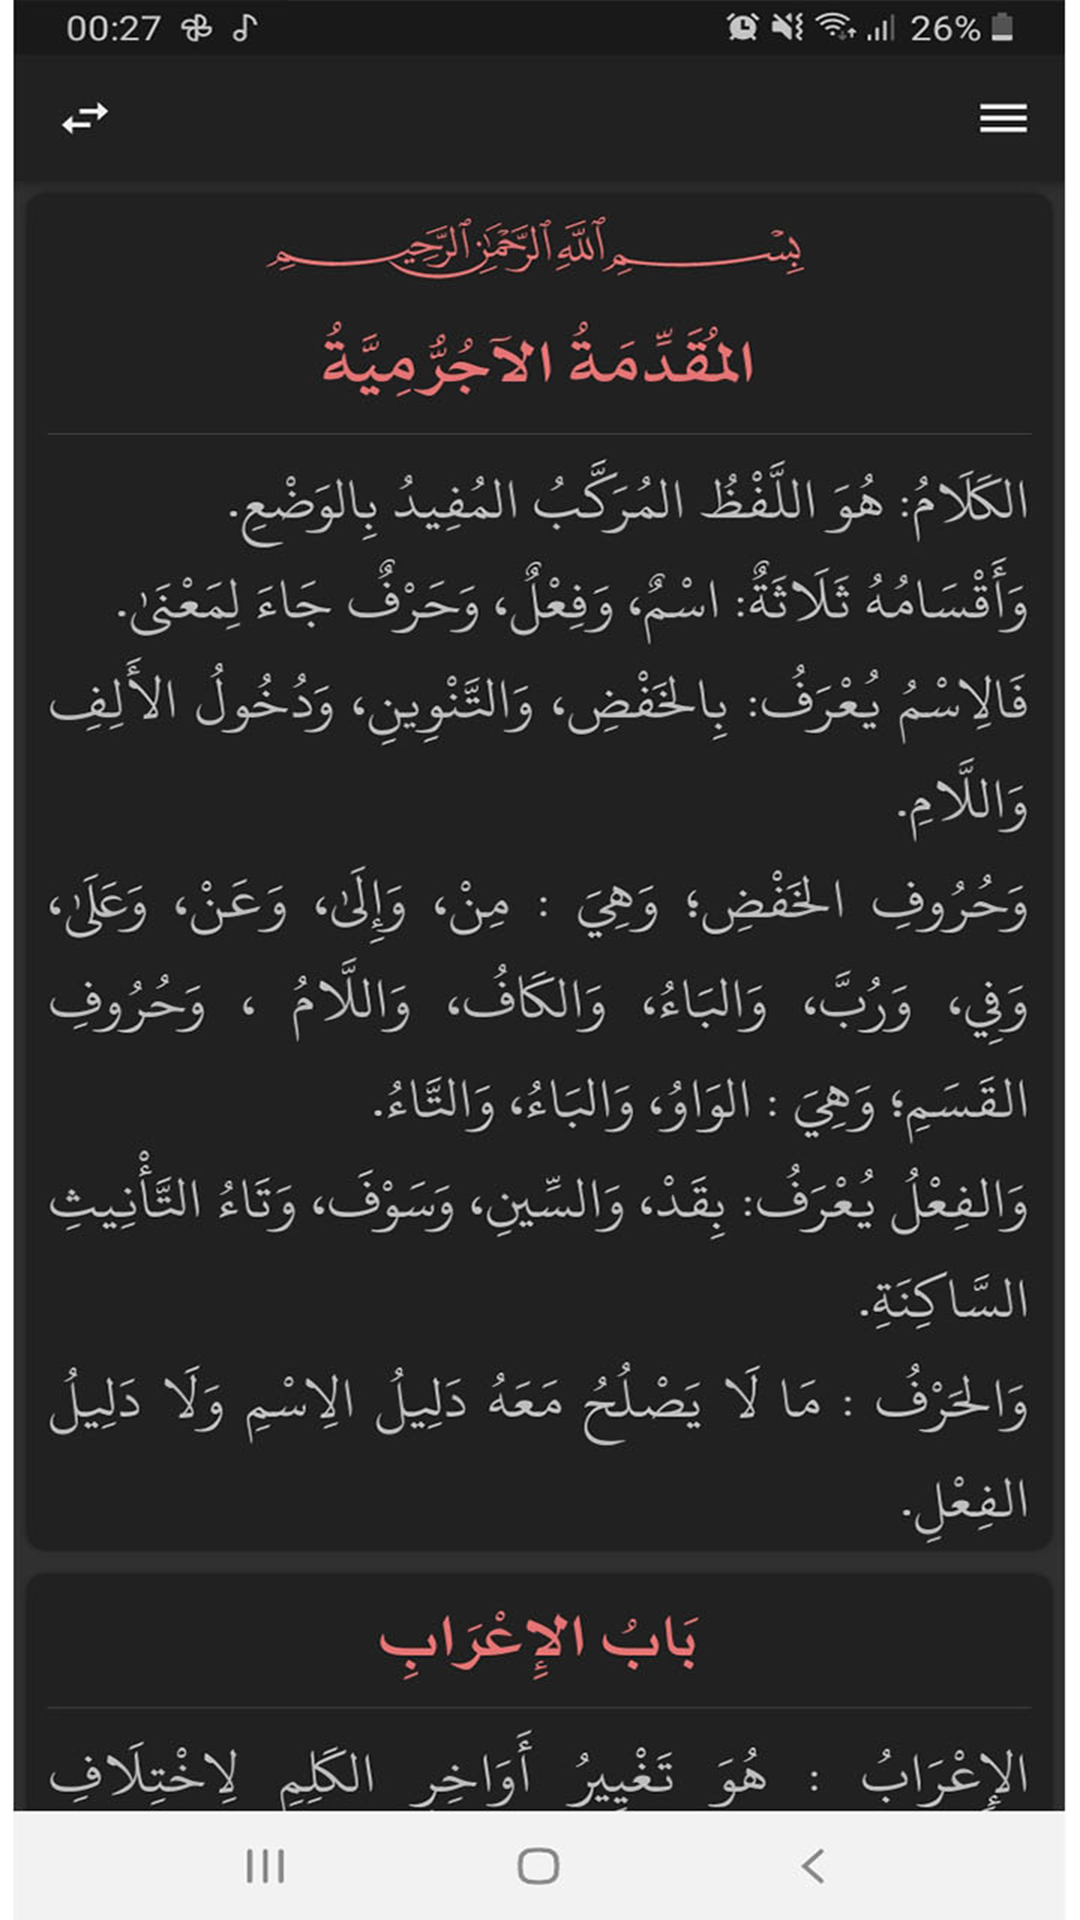 00:27 26%
بِسْمِ ٱللَّهِ ٱلرَّحْمَٰنِ ٱلرَّحِيمِ
المُقَدِّمَةُ الآجُرُّمِيَّةُ
الكَلَامُ: هُوَ اللَّفْظُ المُرَكَّبُ المُفِيدُ بِالوَضْعِ.
وَأَقْسَامُهُ ثَلَاثَةٌ: اسْمٌ، وَفِعْلٌ، وَحَرْفٌ جَاءَ لِمَعْنَىٰ.
فَالِاسْمُ يُعْرَفُ: بِالخَفْضِ، وَالتَّنْوِينِ، وَدُخُولُ الأَلِفِ
وَاللَّامِ.
وَحُرُوفِ الخَفْضِ؛ وَهِيَ : مِنْ، وَإِلَىٰ، وَعَنْ، وَعَلَىٰ،
وَفِي، وَرُبَّ، وَالبَاءُ، وَالكَافُ، وَاللَّامُ ، وَحُرُوفِ
القَسَمِ؛ وَهِيَ : الوَاوُ، وَالبَاءُ، وَالتَّاءُ.
وَالفِعْلُ يُعْرَفُ: بِقَدْ، وَالسِّينِ، وَسَوْفَ، وَتَاءُ التَّأْنِيثِ
السَّاكِنَةِ.
وَالحَرْفُ : مَا لَا يَصْلُحُ مَعَهُ دَلِيلُ الِاسْمِ وَلَا دَلِيلُ
الفِعْلِ.
بَابُ الإِعْرَابِ
الإِعْرَابُ : هُوَ تَغْيِيرُ أَوَاخِرِ الكَلِمِ لِاخْتِلَافِ